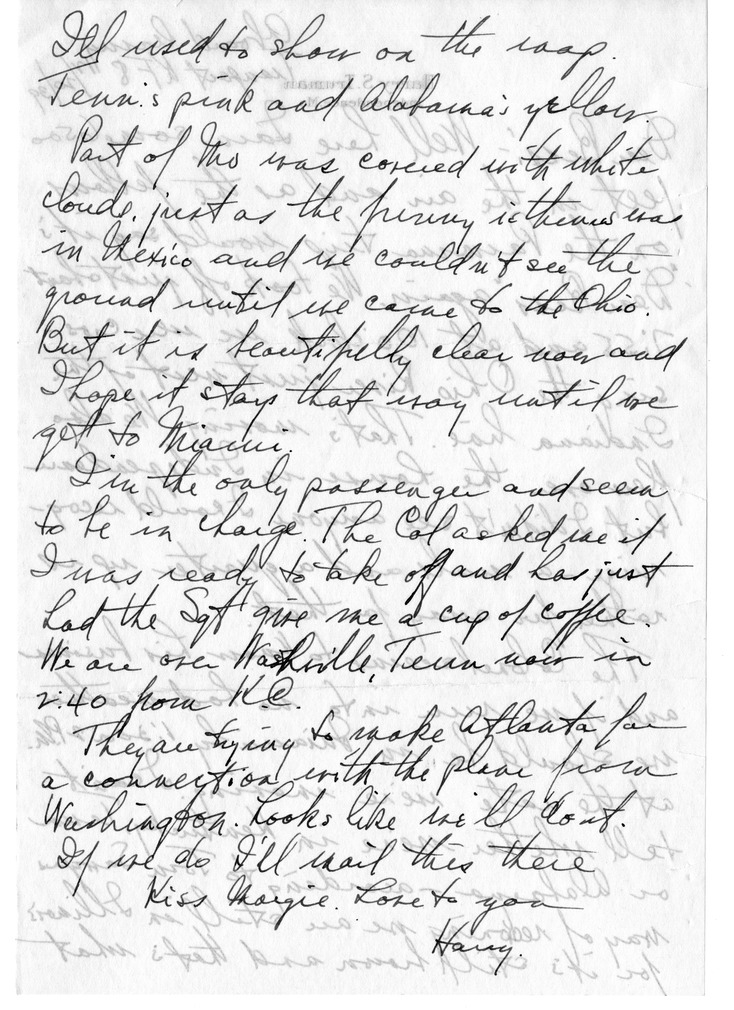 Ill used to show on the map.
Tenn's pink and Alabama's yellow.
Part of Mo was covered with white
clouds, just as the funny isthmus was
in Mexico and we couldn't see the
ground until we came to the Ohio.
But it is beautifully clear now and
I hope it stays that way until we
get to Miami.
I'm the only passenger and seem
to be in charge. The Col asked me if
I was ready to take off and has just
had the Sgt give me a cup of coffee.
We are over Nashville, Tenn now in
2:40 from K.C.
They are trying to make Atlanta for
a connection with the plane from
Washington. Looks like we'll do it.
If we do I'll mail this there
Kiss Margie. Love to you
Harry.